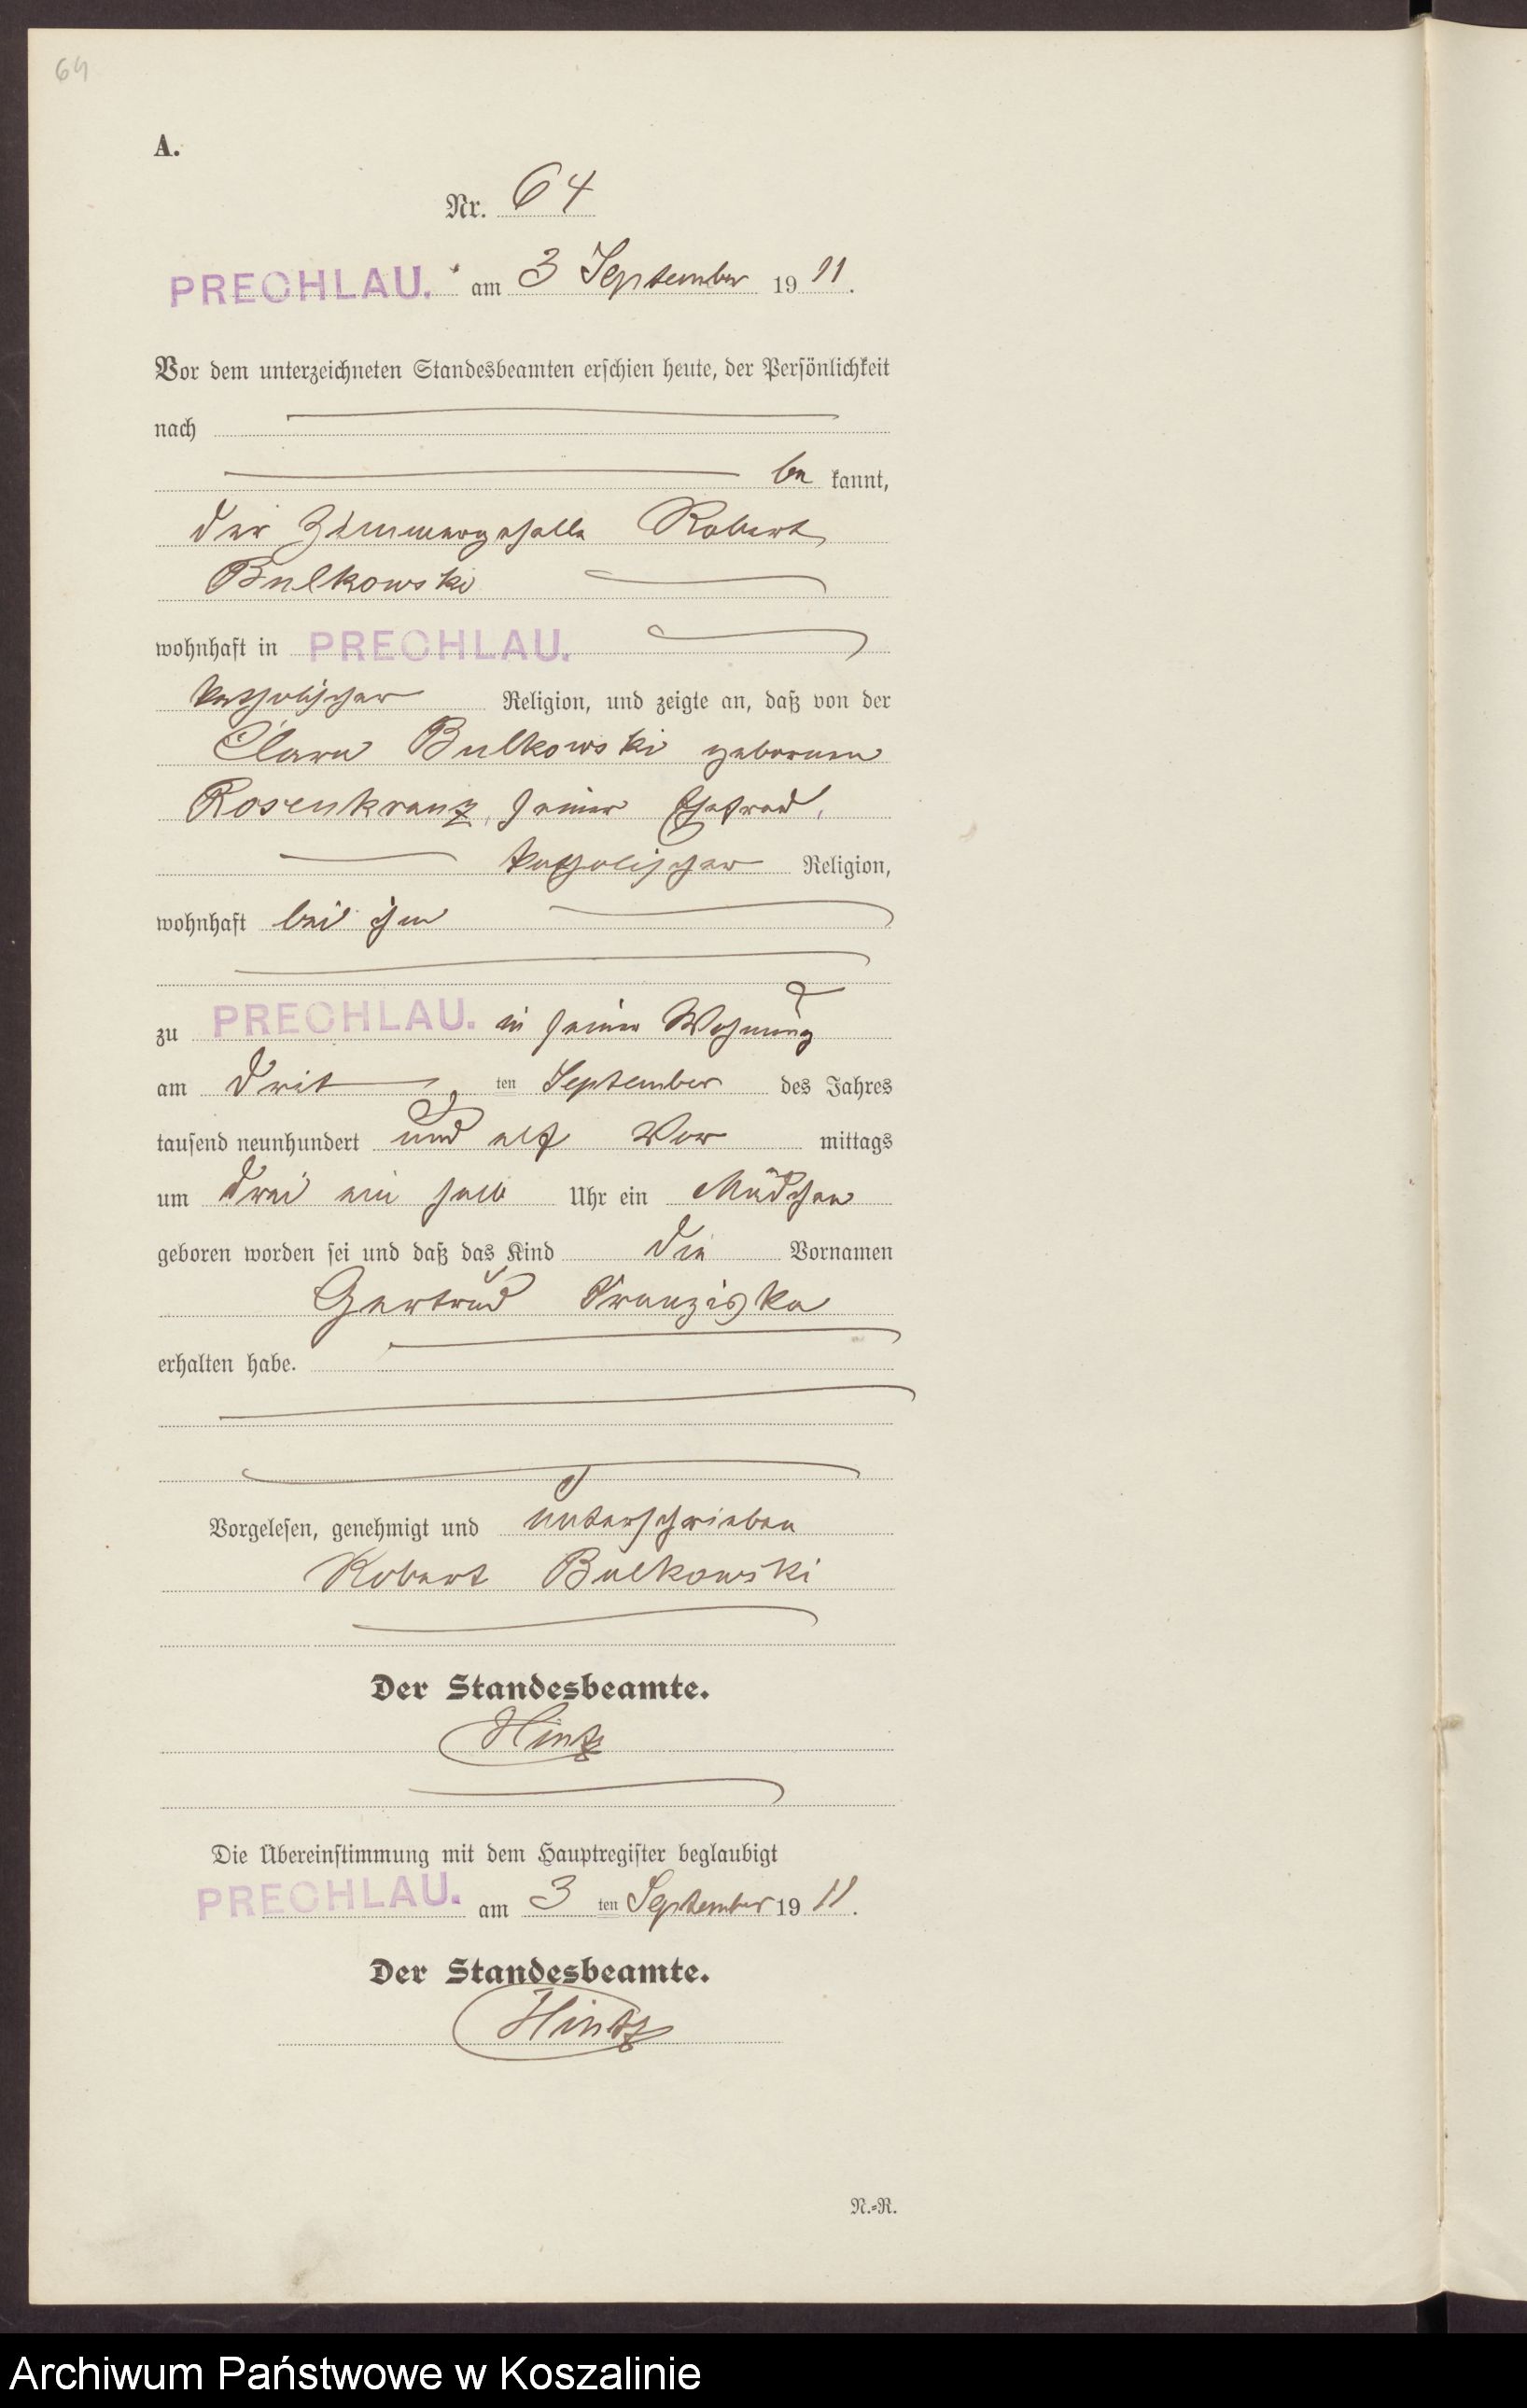 64
A.
Nr. 64
PRECHLAU. am 3 September 1911.
Vor dem unterzeichneten Standesbeamten erschien heute, der Persönlichkeit
nach
be kannt,
der Zimmergeselle Robert
Bulkowski
wohnhaft in PRECHLAU.
katholischer Religion, und zeigte an, daß von der
Clara Bulkowski geborenen
Rosenkranz, seiner Ehefrau,
katholischer Religion,
wohnhaft bei ihm
zu PRECHLAU. in seiner Wohnung
am drit ten September des Jahres
tausend neunhundert und elf Vor mittags
um drei ein halb Uhr ein Mädchen
geboren worden sei und daß das Kind die Vornamen
Gertrud Franziska
erhalten habe.
Vorgelesen, genehmigt und unterschrieben
Robert Bulkowski
Der Standesbeamte.
Hintz
Die Übereinstimmung mit dem Hauptregister beglaubigt
PRECHLAU. am 3 ten September 1911.
Der Standesbeamte.
Hintz
N.=R.
Archiwum Państwowe w Koszalinie